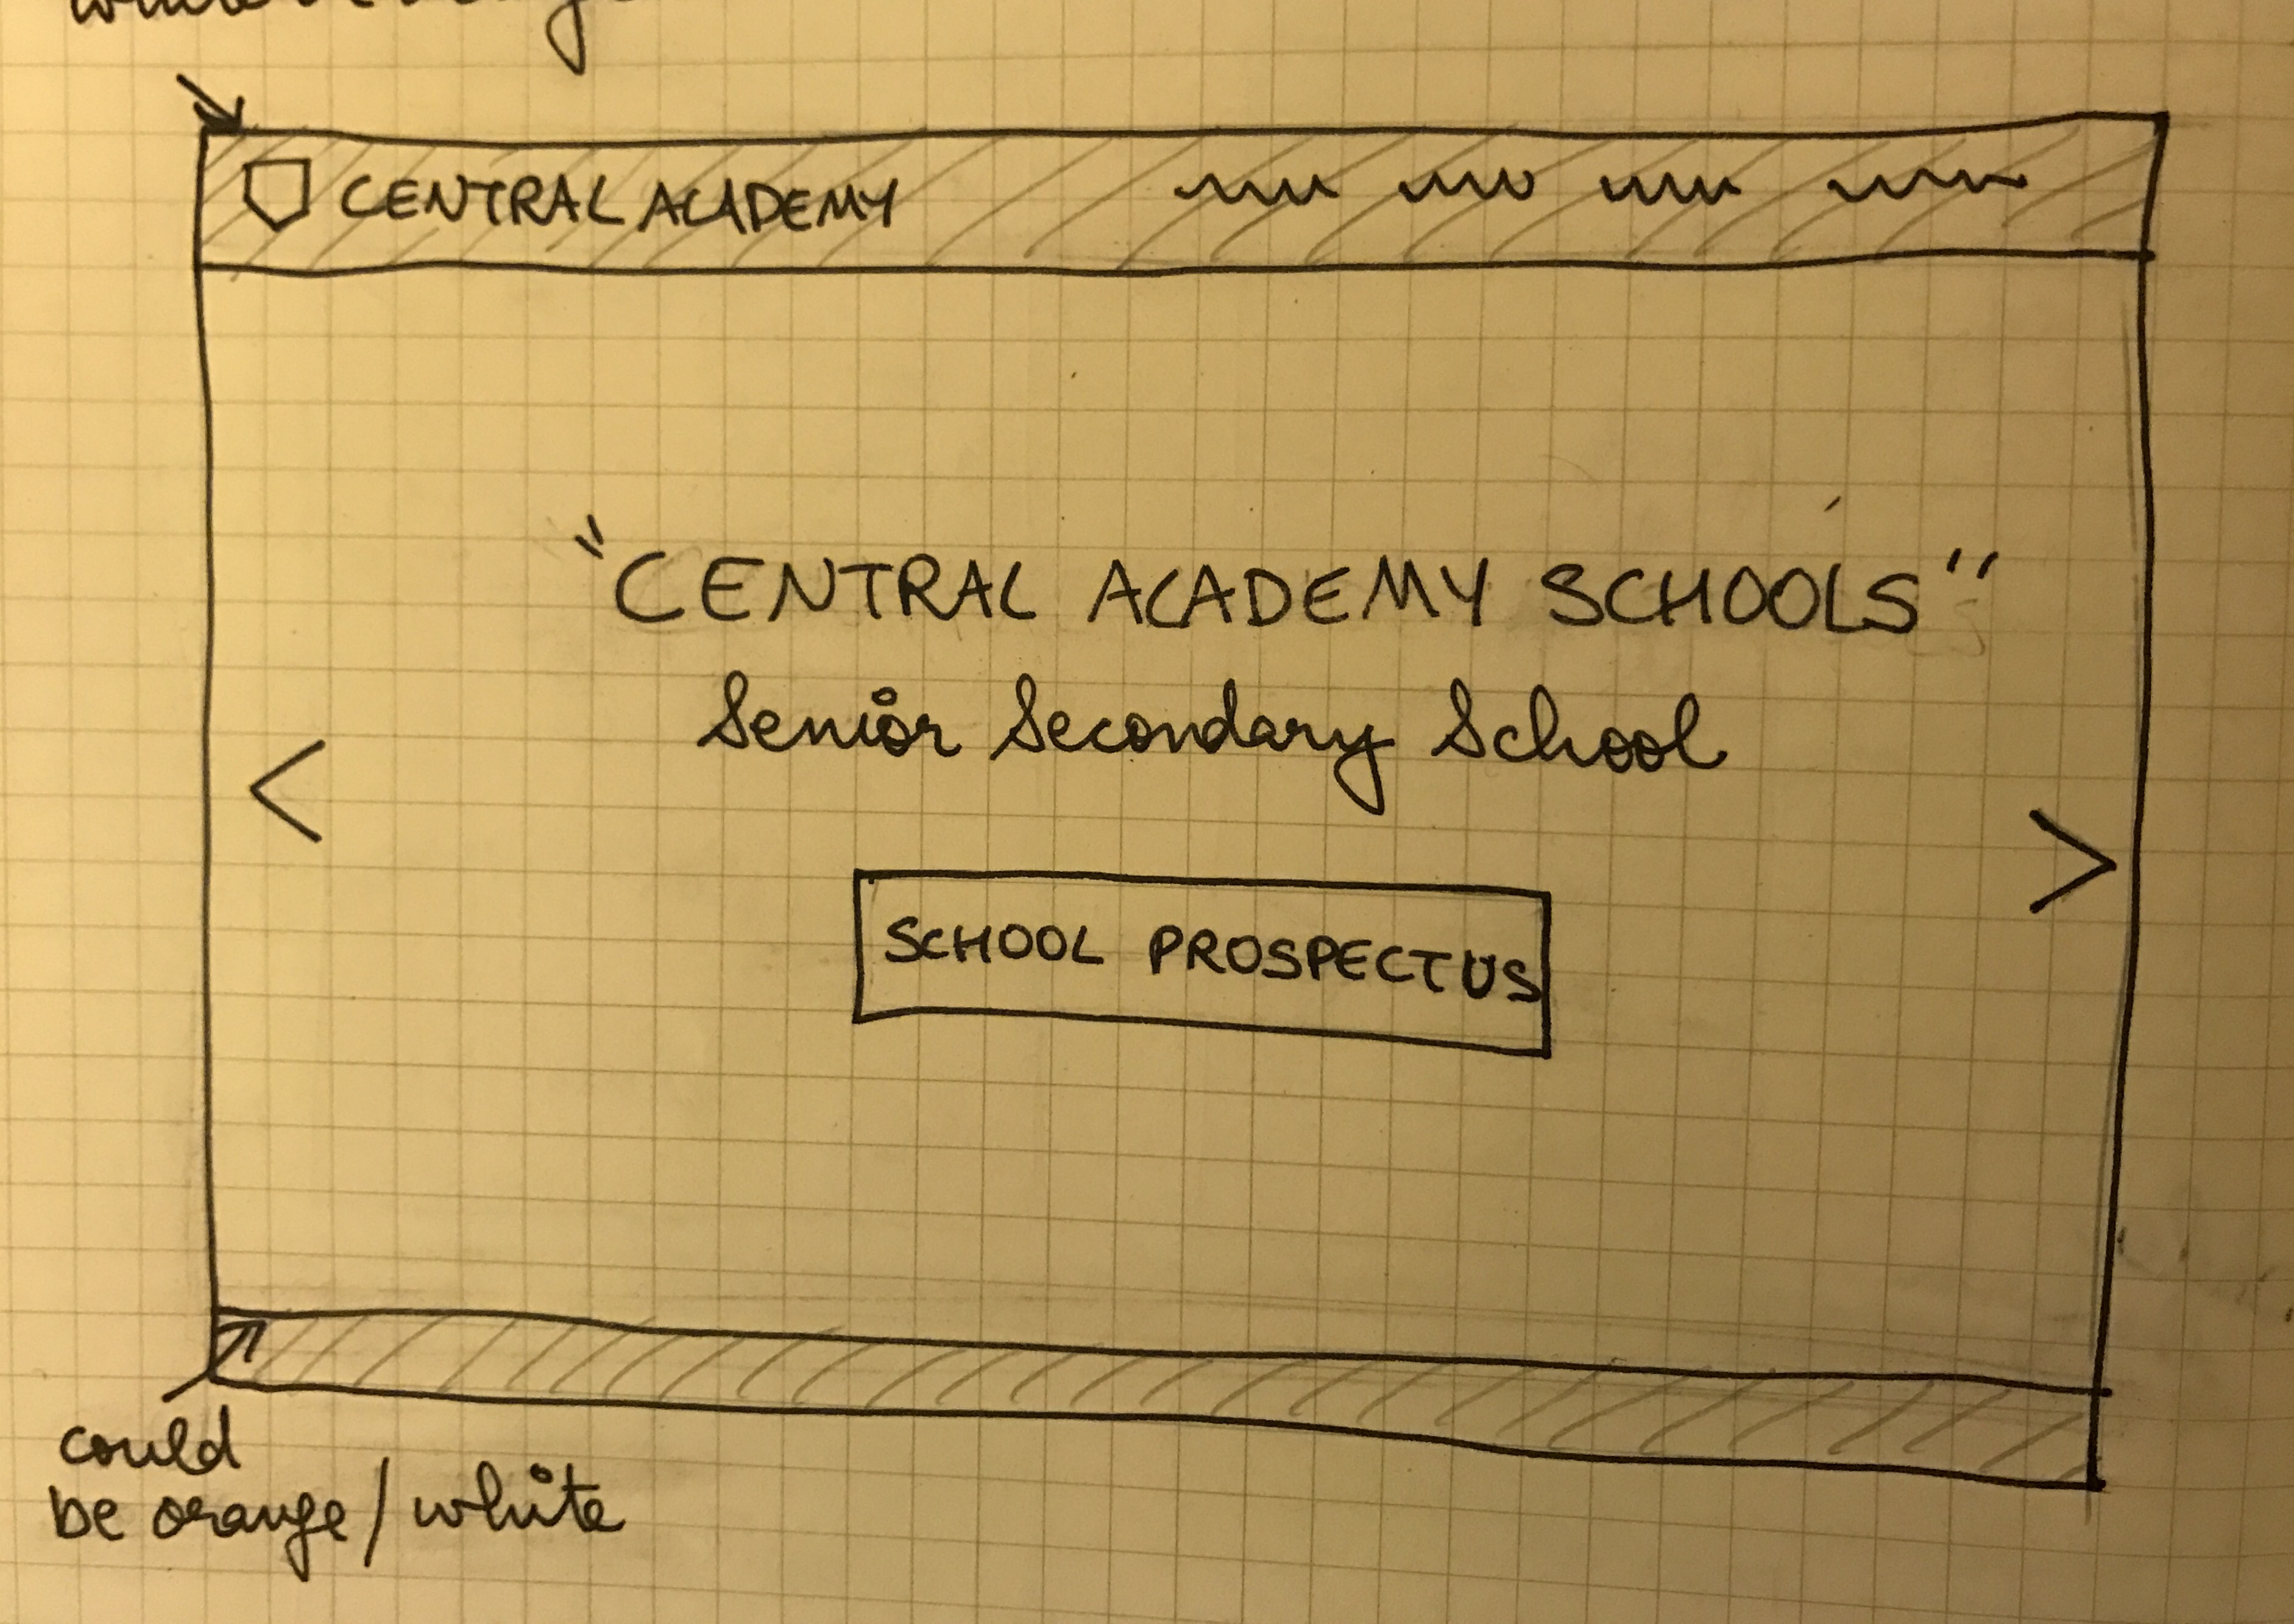 CENTRAL ACADEMY
"CENTRAL ACADEMY SCHOOLS"
Senior Secondary School
<
>
SCHOOL PROSPECTUS
could
be orange/white